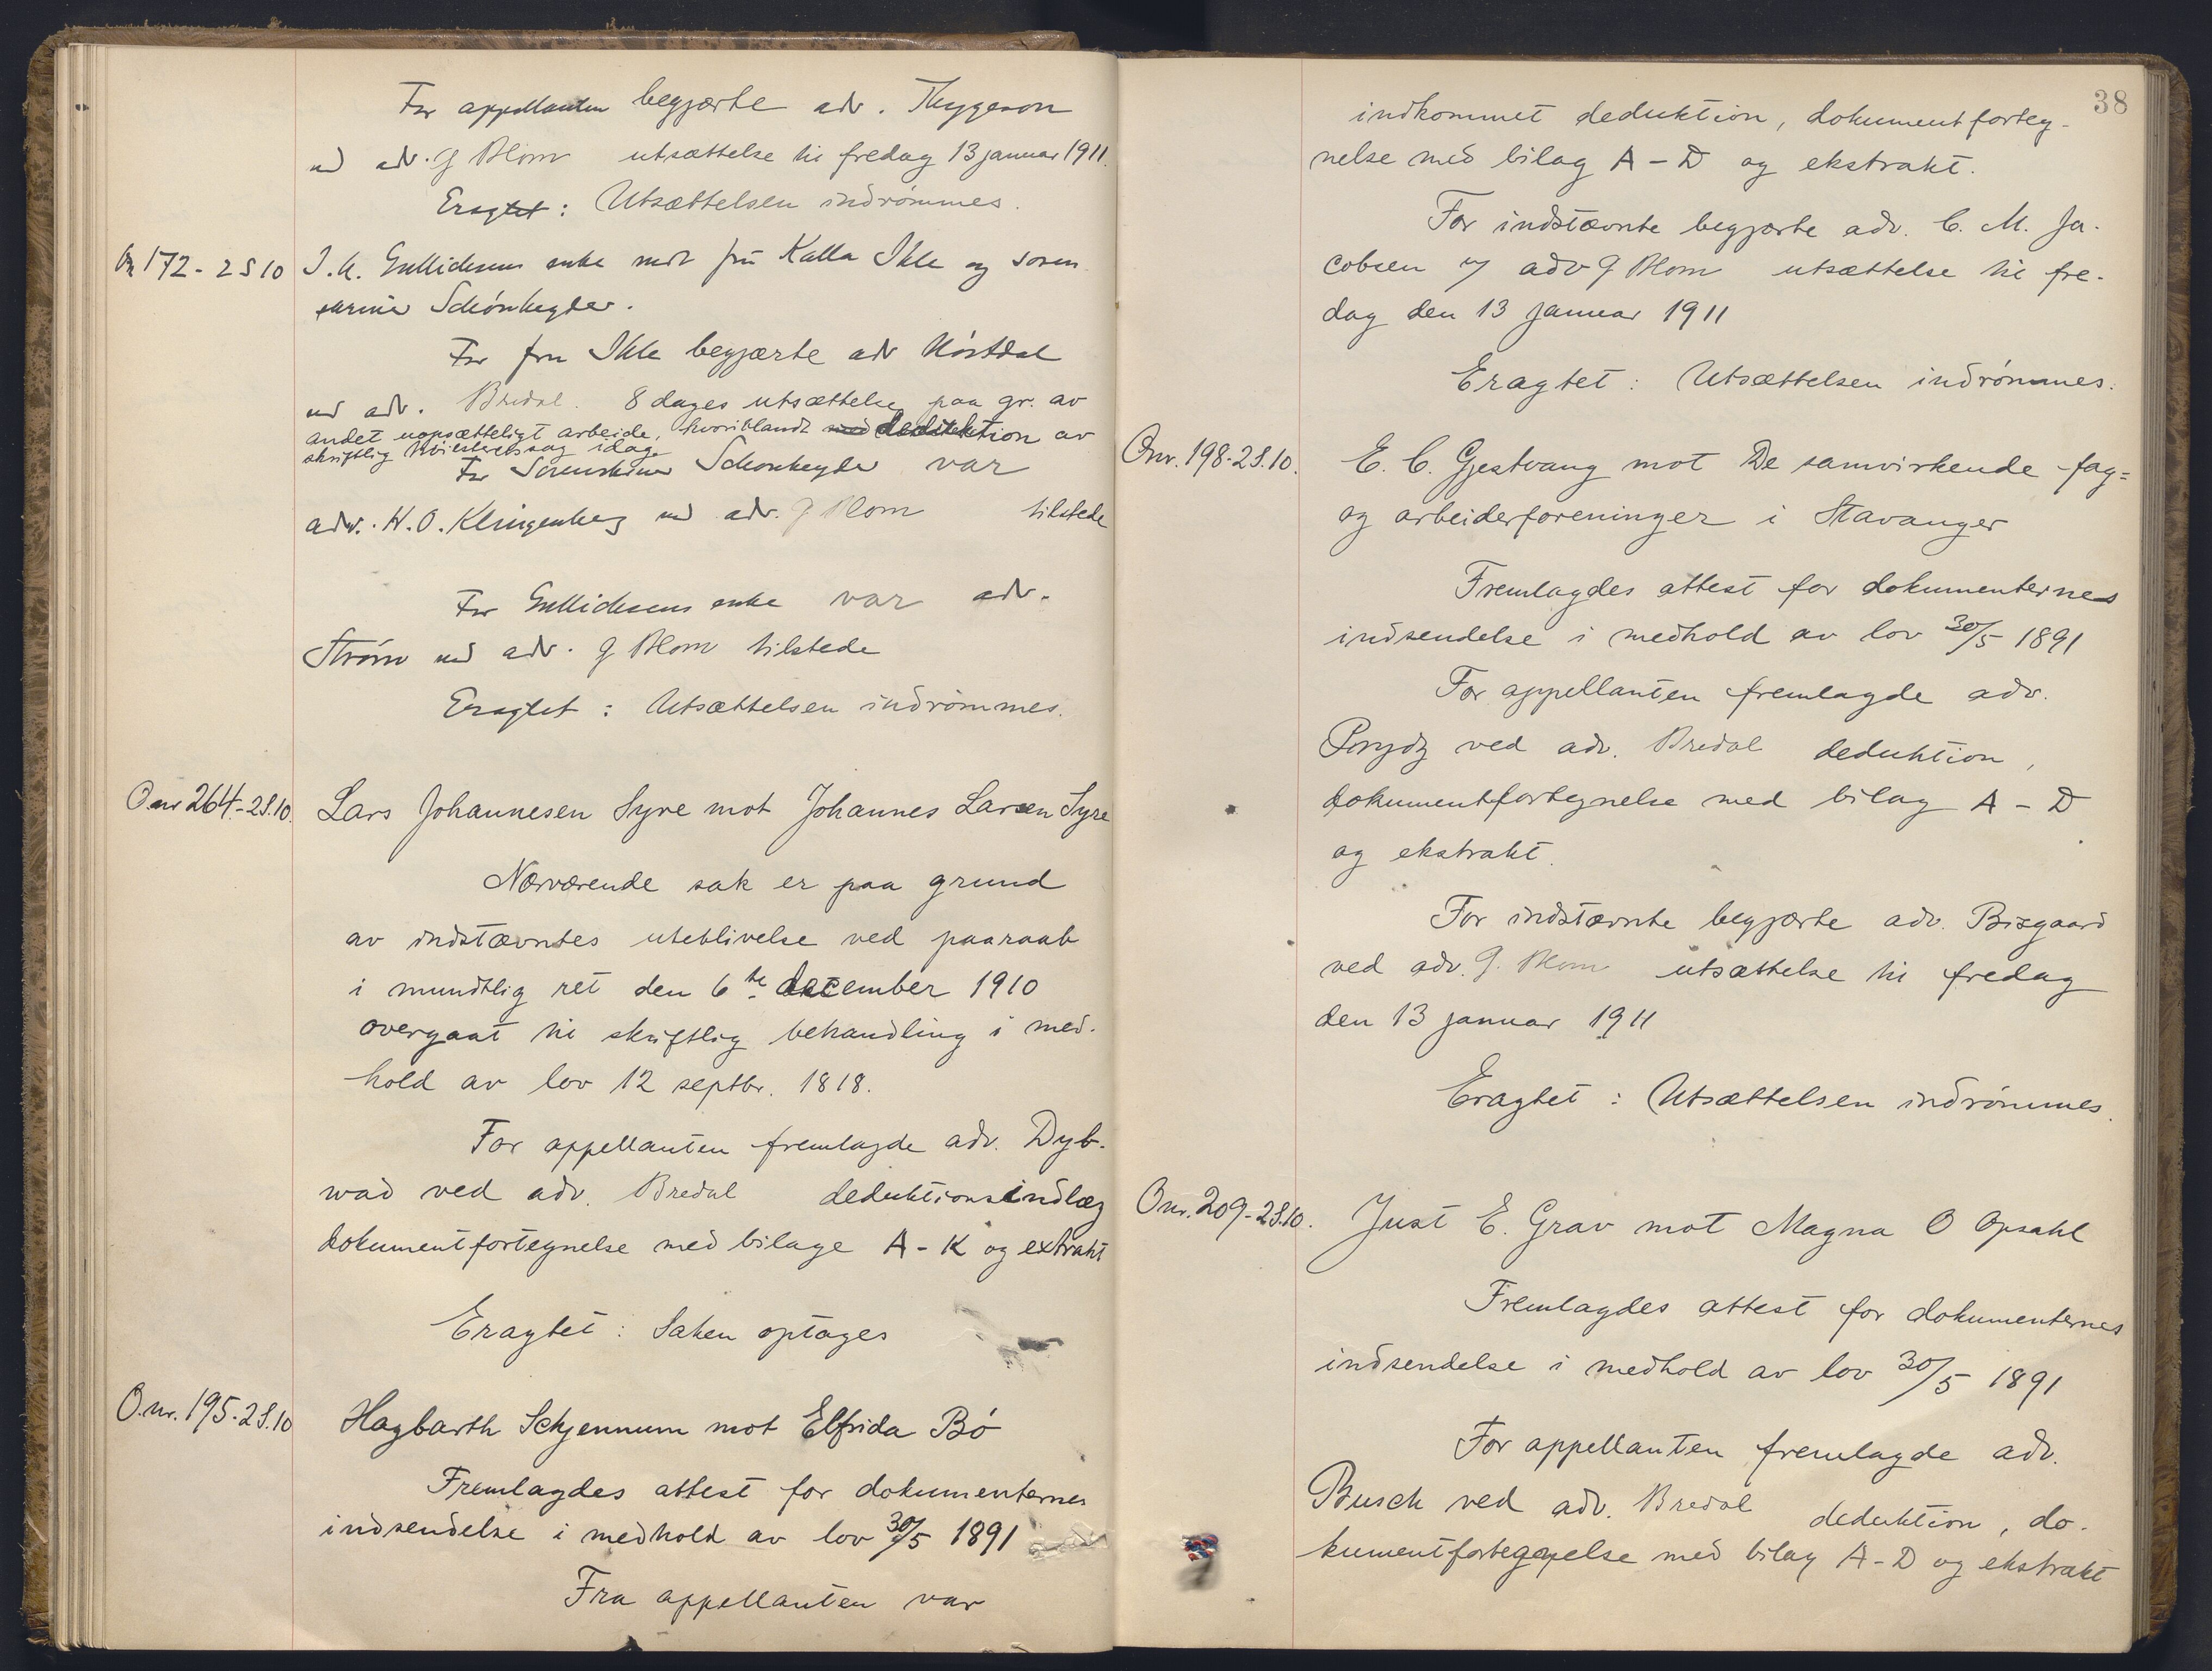 For appellanten begjærte adv. Thygeson
ved adv. G Blom utsættelse til fredag 13 januar 1911.
Eragtet: Utsættelsen indrømmes.
Onr 172 - 2 S 10
I. K. enke mot fru Kalla Ihle og soren
skriver Schönheyder.
For fru Ihle begjærte adv Höstdal
ved adv. Bredal. 8 dages utsættelse paa gr. av
andet uopsætteligt arbeide, hvoriblandt deduktion av
skriftlig høiesteretssag idag.
For Sorenskriver Schönheyder var
adv. H. O. Klingenberg ved adv. G Blom tilstede
For enke var adv.
Strøm ved adv. G Blom tilstede
Eragtet: Utsættelsen indrømmes.
O nr 264 - 2S.10.
Lars Johannesen Syre mot Johannes Larsen Syre
Nærværende sak er paa grund
av indstævntes uteblivelse ved paaraab
i mundtlig ret den 6te december 1910
overgaat til skriftlig behandling i med-
hold av lov 12 septbr. 1818.
For appellanten fremlagde adv. Dyb-
wad ved adv. Bredal deduktionsindlæg
dokumentfortegnelse med bilage A - K og extrakt
Eragtet: Saken optages
O.nr. 195 - 2S.10
Hagbarth Schjennum mot Elfrida Bö
Fremlagdes attest for dokumenternes
indsendelse i medhold av lov 30/5 1891
Fra appellanten var
38
indkommet deduktion, dokumentforteg-
nelse med bilag A - D og ekstrakt.
For indstævnte begjærte adv. C. M. Ja-
cobsen v/ adv G Blom utsættelse til fre-
dag den 13 januar 1911
Eragtet: Utsættelsen indrømmes.
Onr. 198 - 2S.10.
E. C. Gjestvang mot De samvirkende fag-
og arbeiderforeninger i Stavanger
Fremlagdes attest for dokumenternes
indsendelse i medhold av lov 30/5 1891
For appellanten fremlagde adv.
ved adv. Bredal deduktion,
dokumentfortegnelse med bilag A - D
og ekstrakt.
For indstævnte begjærte adv. Bisgaard
ved adv. G. Blom utsættelse til fredag
den 13 januar 1911
Eragtet: Utsættelsen indrømmes.
O nr. 209 - 2S.10.
Just E. Grav mot Magna O Opsahl
Fremlagdes attest for dokumenternes
indsendelse i medhold av lov 30/5 1891
For appellanten fremlagde adv.
Busch ved adv. Bredal deduktion, do-
kumentfortegnelse med bilag A - D og ekstrakt